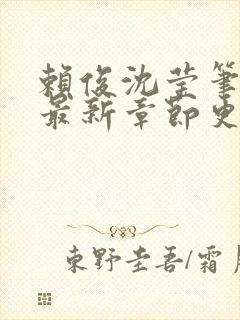 賴俊沈瑩筆
最新章節史
東野圭吾/霜月